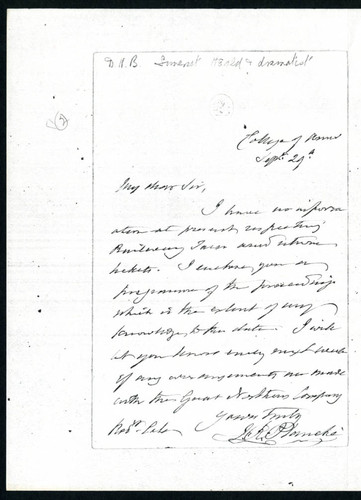 D.N.B. Somerset Herald & dramatist
(2)
College of Arms
Sept 29th
My dear Sir,
I have no inform
ation at present respecting
Railway Fares and return
tickets. I enclose you a
programme of the proceedings
which is the extent of my
knowledge to this date. I will
let you know early next week
if any arrangements are made
with the Great Northern Company
Yours truly
J. R. Planché
Robt